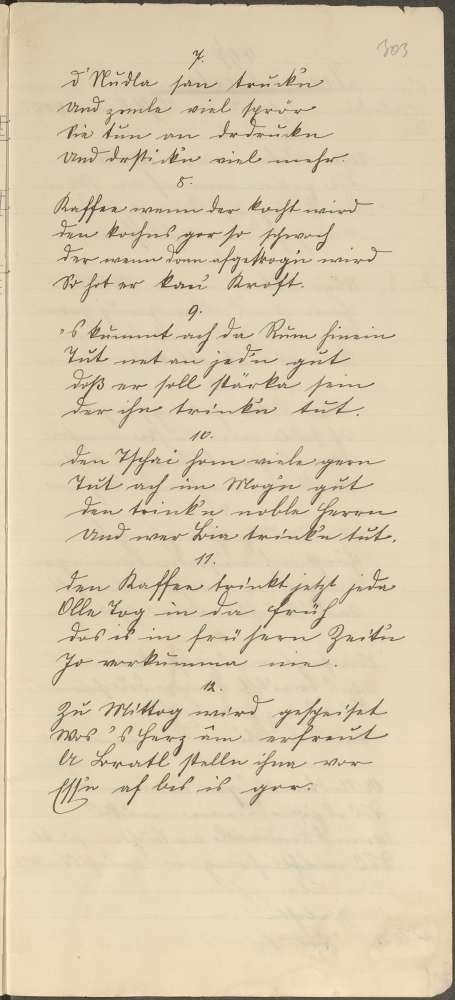 303
7.
d'Nudla san truck'n
Und viel sprör
Sie tun an drdruckn
Und drstick'n viel mehr.
8.
Kaffee wenn der kocht wird
den kochns gor so schwoch
der wenn donn afgetrog'n wird
So hot er kau' Kroft.
9.
's kummt ach da Rum hinein
Tut net an jed'n gut
daß er soll stärka sein
der ihn trink'n tut.
10.
den Tschai hom viele gern
Tut ach im Mog'n gut
den trink'n noble Herrn
Und wer Bia trink'n tut.
11.
den Kaffee trinkt jetzt jeda
Olle Tog in da früh
das is in frühern Zeit'n
Jo vorkumma nie.
12.
Zu Mittog wird gespeiset
Wos 's Herz üm erfreut
A Bratl stelln ihna vor
Ess'n af bis is gor.